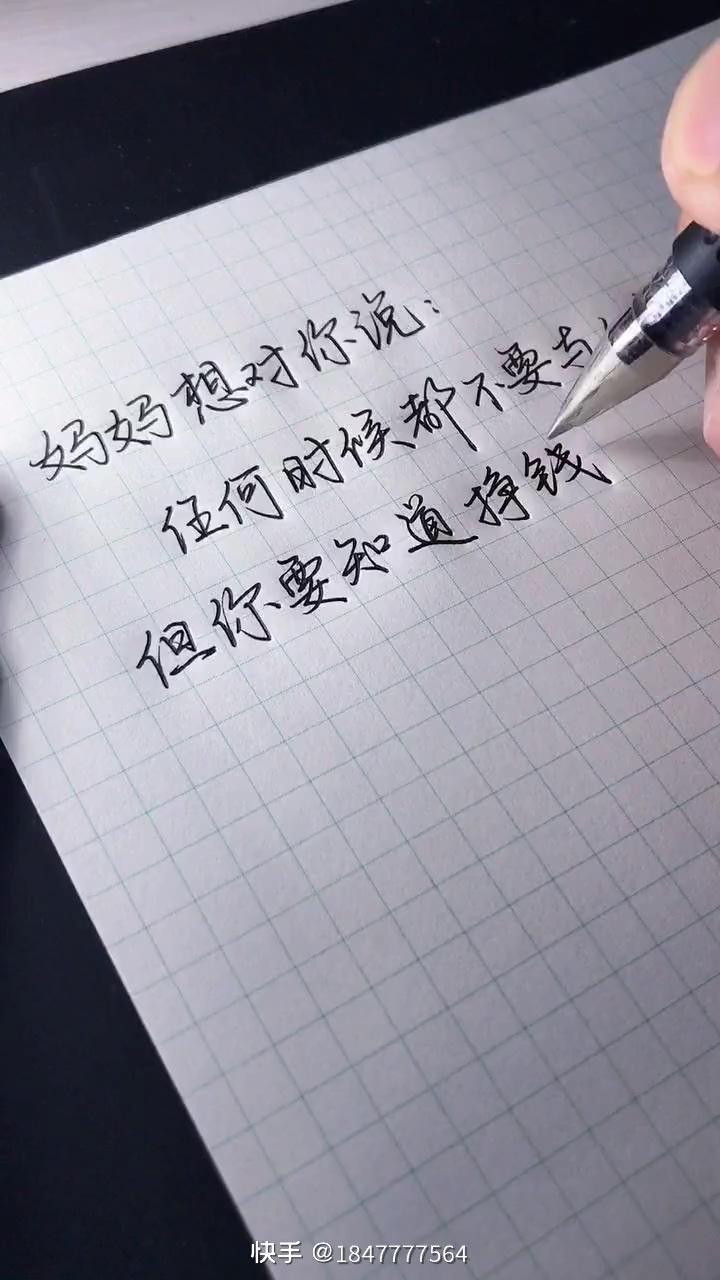 妈妈想对你说：
任何时候都不要与
但你要知道挣钱
快手 @1847777564